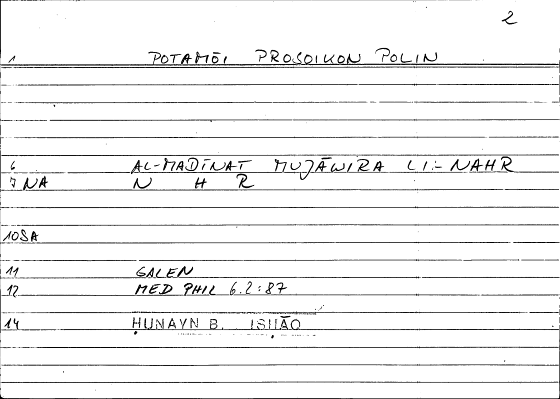 2
1 POTAMŌI PROSOIKON POLIN
6 AL-MADĪNAT MUJĀWIRA LI-NAHR
7 NA N H R
10 SA
11 GALEN
12 MED PHIL 6.2:87
14 ḤUNAYN B. ISḤĀQ